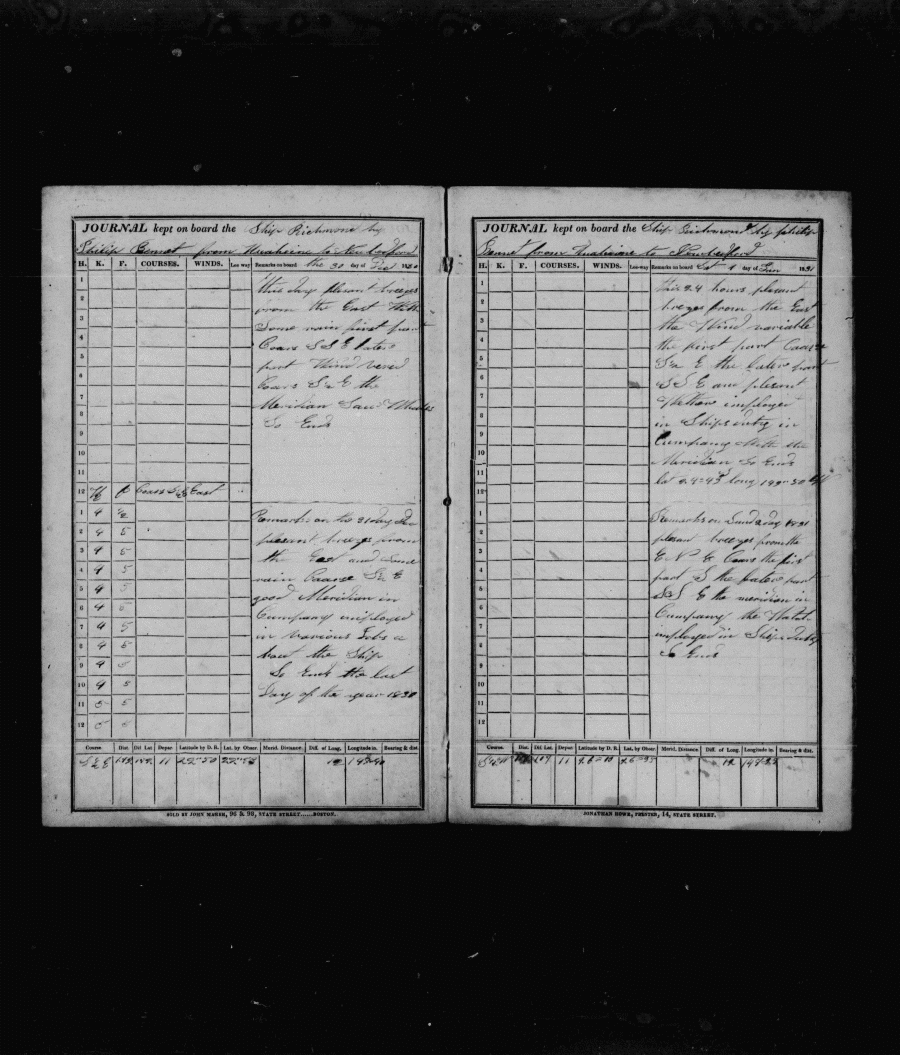 JOURNAL kept on board the Ship Richmond by
Philip Bemot from Huahiene to Newbedford
H. K. F. COURSES. WINDS. Lee-way Remarks on board the 30 day of Dec 1830
1 this day plesent breezes
2 from the East With
3 Some rain first part
4 Coars S S E later
5 part Wind vered
6 Coars S & E the
7 Meridian Saw Whales
8 So Ends
9
10
11
12 Coars S & East
1 4 Remarks on the 31 day
2 4 5 plesent breezes from
3 4 5 the East and Some
4 4 5 rain Coarse S & E
5 4 5 good Meridian in
6 4 5 Cumpany imployed
7 4 5 in various Jobs a
8 4 5 bout the Ship
9 4 5 So Ends the last
10 4 5 Day of the year 1830
11 5 5
12 5 5
Course Dist. Dif Lat. Depar. Latitude by D. R. Lat. by Obser. Merid. Distance. Diff. of Long. Longitude in. Bearing & dist.
11 12
SOLD BY JOHN MARSH, 96 & 98, STATE STREET......BOSTON.
JOURNAL kept on board the Ship Richmond by philip
from Huahiene to Newbedford
H. K. F. COURSES. WINDS. Lee-way Remarks on board Sat 1 day of Jan 1831
1 this 24 hours plesent
2 brezes from the East
3 the Wind variable
4 the first part Coarse
5 S & E the later part
6 S S E and plesent
7 Wethow imployed
8 in Ships duty in
9 Cumpany With the
10 Meridian So Ends
11 lat 24=43 long 149=30
12
1 Remarks on Sund 2 day 1831
2 plesan breezes from the
3 E N E Coars the first
4 part S the later part
5 S S E the meridian in
6 Cumpany the Watch
7 imployed in Ships duty
8 So Ends
9
10
11
12
Course. Dist. Dif Lat. Depar. Latitude by D. R. Lat. by Obser. Merid. Distance. Diff. of Long. Longitude in. Bearing & dist.
109 11 26=10 26=35 12
JONATHAN HOWE, PRINTER, 14, STATE STREET.